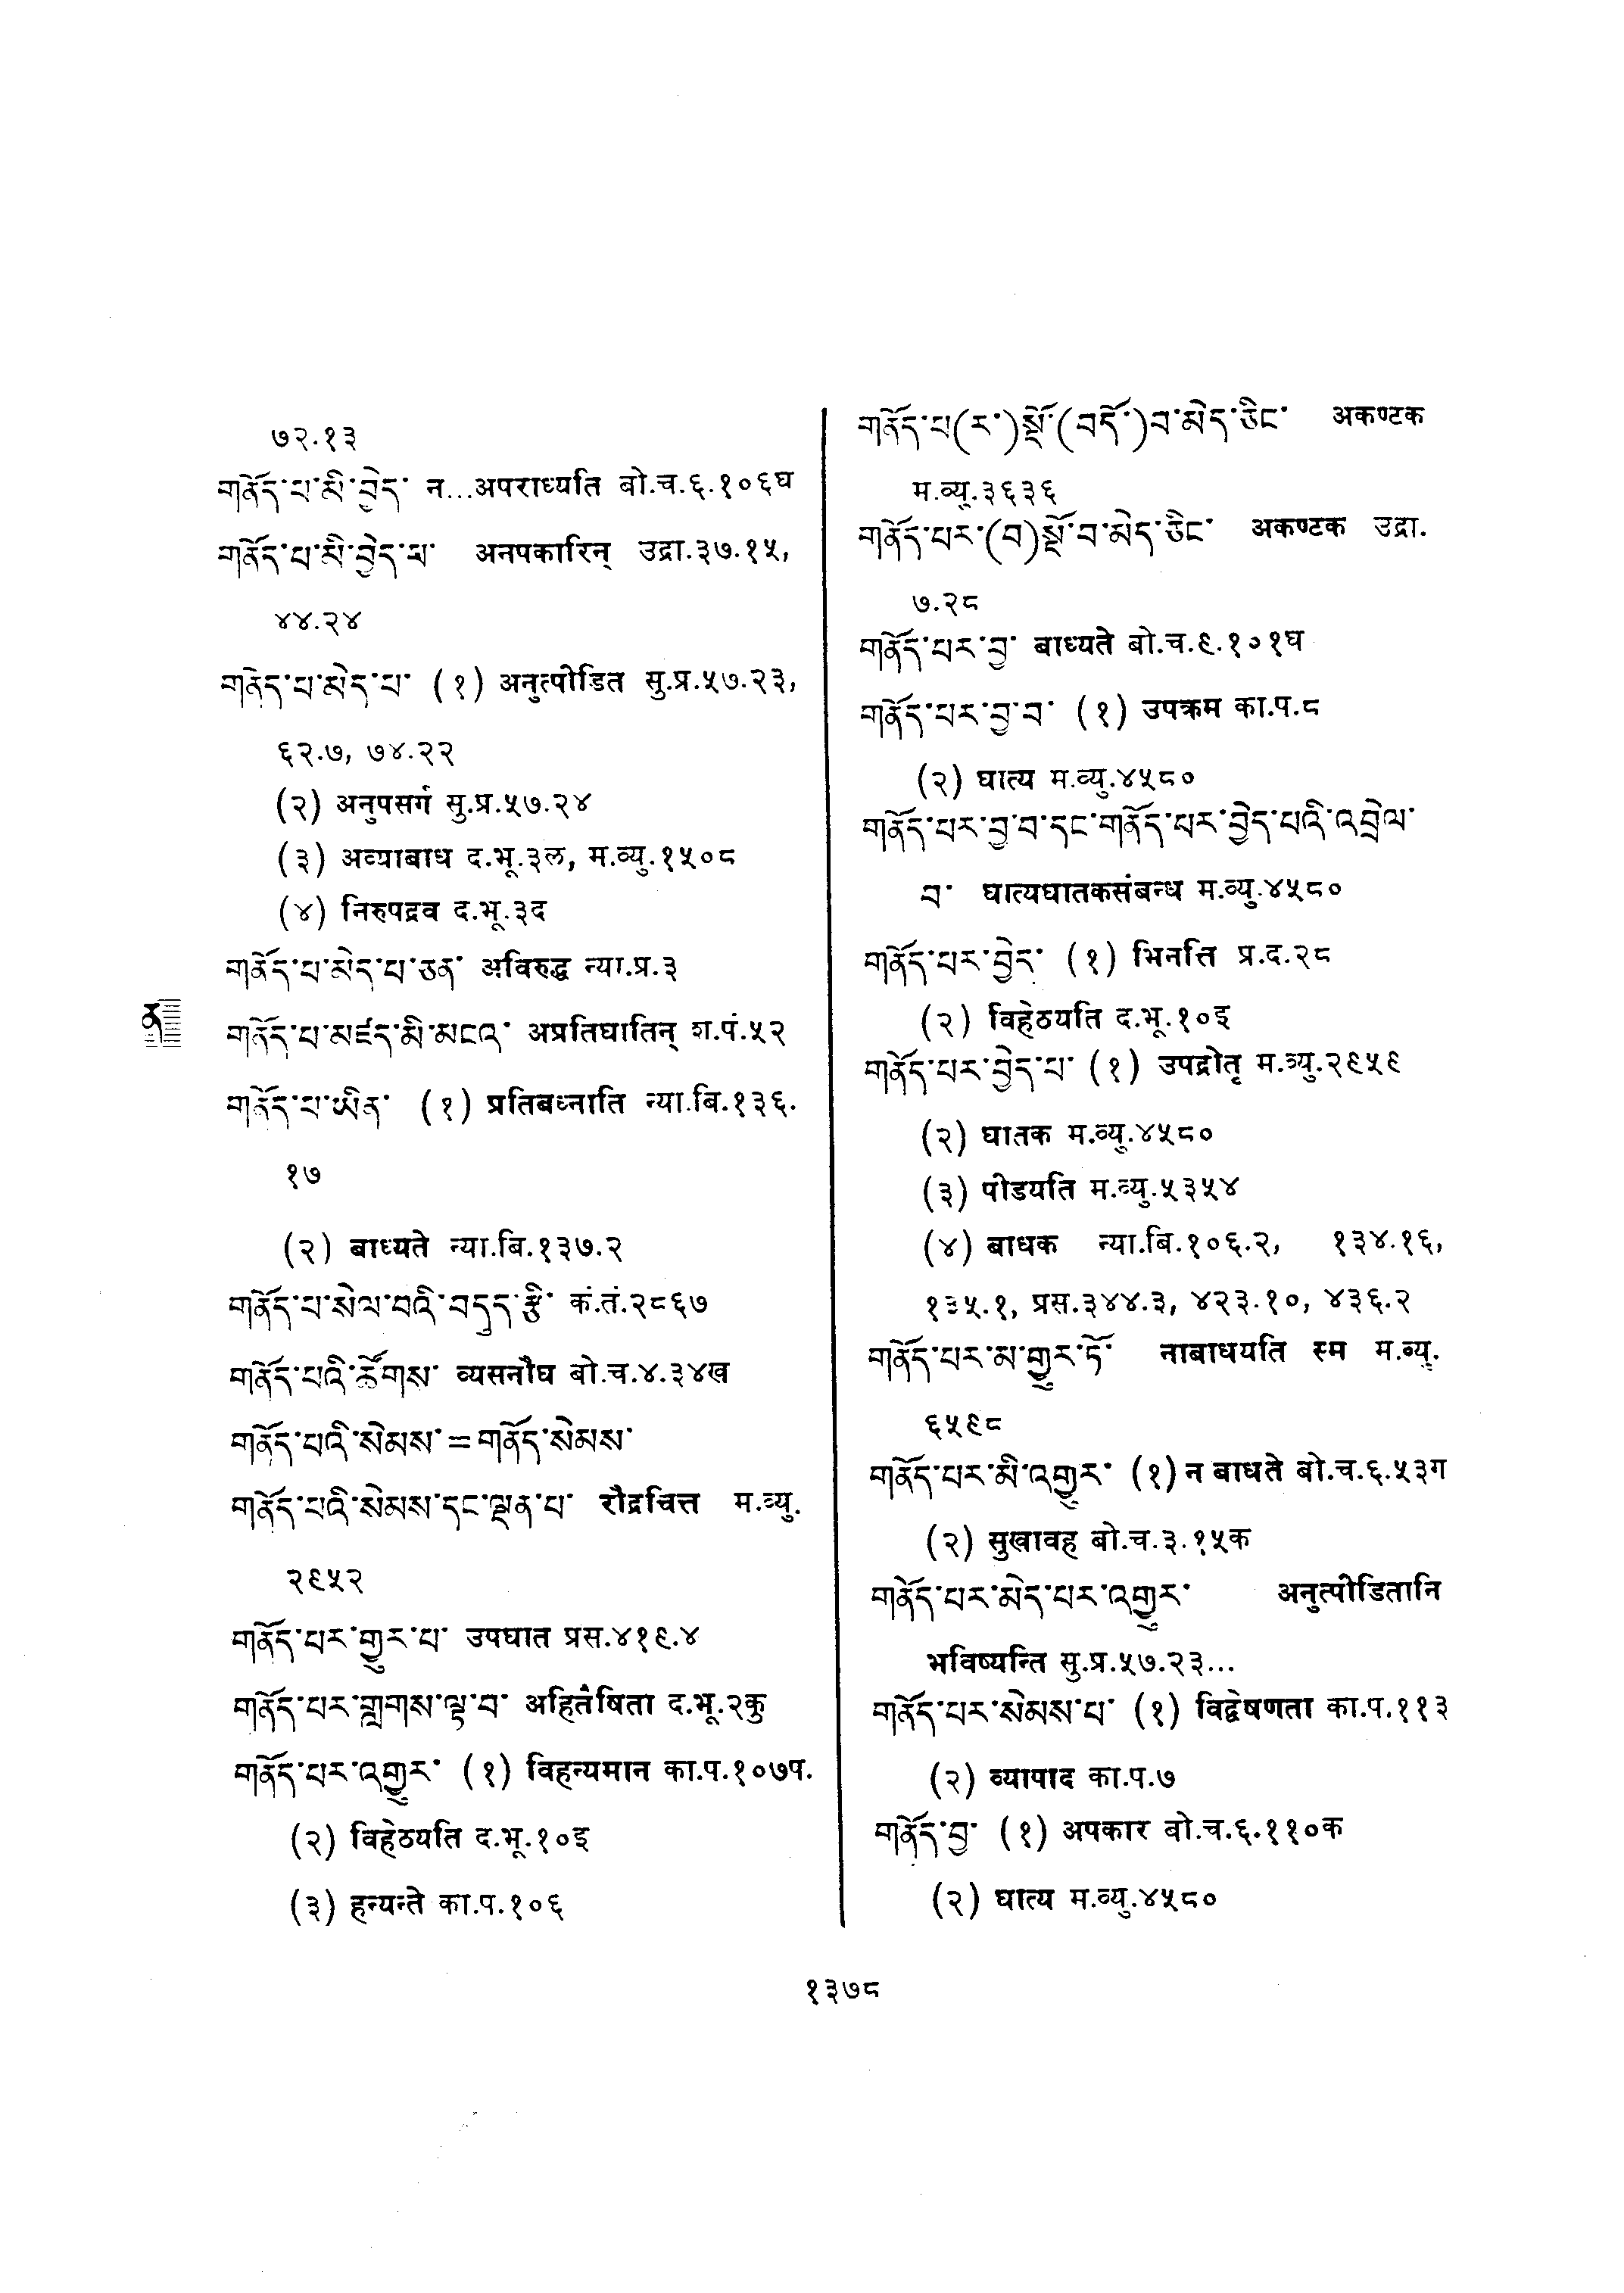 ७२.१३
གནོད་པ་མི་བྱེད་ न...अपराध्यति बो.च.६.१०६घ
གནོད་པ་མི་བྱེད་པ་ अनपकारिन् उद्रा.३७.१५,
४४.२४
གནོད་པ་མེད་པ་ (१) अनुत्पीडित सु.प्र.५७.२३,
६२.७, ७४.२२
(२) अनुपसर्ग सु.प्र.५७.२४
(३) अव्याबाध द.भू.३ल, म.व्यु.१५०८
(४) निरुपद्रव द.भू.३द
གནོད་པ་མེད་པ་ཅན་ अविरुद्ध न्या.प्र.३
ན
གནོད་པ་མཛད་མི་མངའ་ अप्रतिघातिन् श.पं.५२
གནོད་པ་ཡིན་ (१) प्रतिबध्नाति न्या.बि.१३६.
१७
(२) बाध्यते न्या.बि.१३७.२
གནོད་པ་སེལ་བའི་བདུད་རྩི་ कं.तं.२८६७
གནོད་པའི་ཚོགས་ व्यसनौघ बो.च.४.३४ख
གནོད་པའི་སེམས་=གནོད་སེམས་
གནོད་པའི་སེམས་དང་ལྡན་པ་ रौद्रचित्त म.व्यु.
२९५२
གནོད་པར་གྱུར་པ་ उपघात प्रस.४१९.४
གནོད་པར་གླགས་ལྟ་བ་ अहितैषिता द.भू.२कु
གནོད་པར་འགྱུར་ (१) विहन्यमान का.प.१०७प.
(२) विहेठयति द.भू.१०इ
(३) हन्यन्ते का.प.१०६
གནོད་པ(ར་)སྡོ་(བདོ་)བ་མེད་ཅིང་ अकण्टक
म.व्यु.३६३६
གནོད་པར་(བ)སྡོ་བ་མེད་ཅིང་ अकण्टक उद्रा.
७.२८
གནོད་པར་བྱ་ बाध्यते बो.च.९.१०१घ
གནོད་པར་བྱ་བ་ (१) उपक्रम का.प.८
(२) घात्य म.व्यु.४५८०
གནོད་པར་བྱ་བ་དང་གནོད་པར་བྱེད་པའི་འབྲེལ་
བ་ घात्यघातकसंबन्ध म.व्यु.४५८०
གནོད་པར་བྱེད་ (१) भिनत्ति प्र.द.२८
(२) विहेठयति द.भू.१०इ
གནོད་པར་བྱེད་པ་ (१) उपद्रोतृ म.व्यु.२९५९
(२) घातक म.व्यु.४५८०
(३) पीडयति म.व्यु.५३५४
(४) बाधक न्या.बि.१०६.२, १३४.१६,
१३५.१, प्रस.३४४.३, ४२३.१०, ४३६.२
གནོད་པར་མ་གྱུར་ཏོ་ नाबाधयति स्म म.व्यु.
६५९८
གནོད་པར་མི་འགྱུར་ (१) न बाधते बो.च.६.५३ग
(२) सुखावह बो.च.३.१५क
གནོད་པར་མེད་པར་འགྱུར་ अनुत्पीडितानि
भविष्यन्ति सु.प्र.५७.२३...
གནོད་པར་སེམས་པ་ (१) विद्वेषणता का.प.११३
(२) व्यापाद का.प.७
གནོད་བྱ་ (१) अपकार बो.च.६.११०क
(२) घात्य म.व्यु.४५८०
१३७८